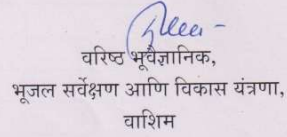 वरिष्ठ भूवैज्ञानिक,
भूजल सर्वेक्षण आणि विकास यंत्रणा,
वाशिम